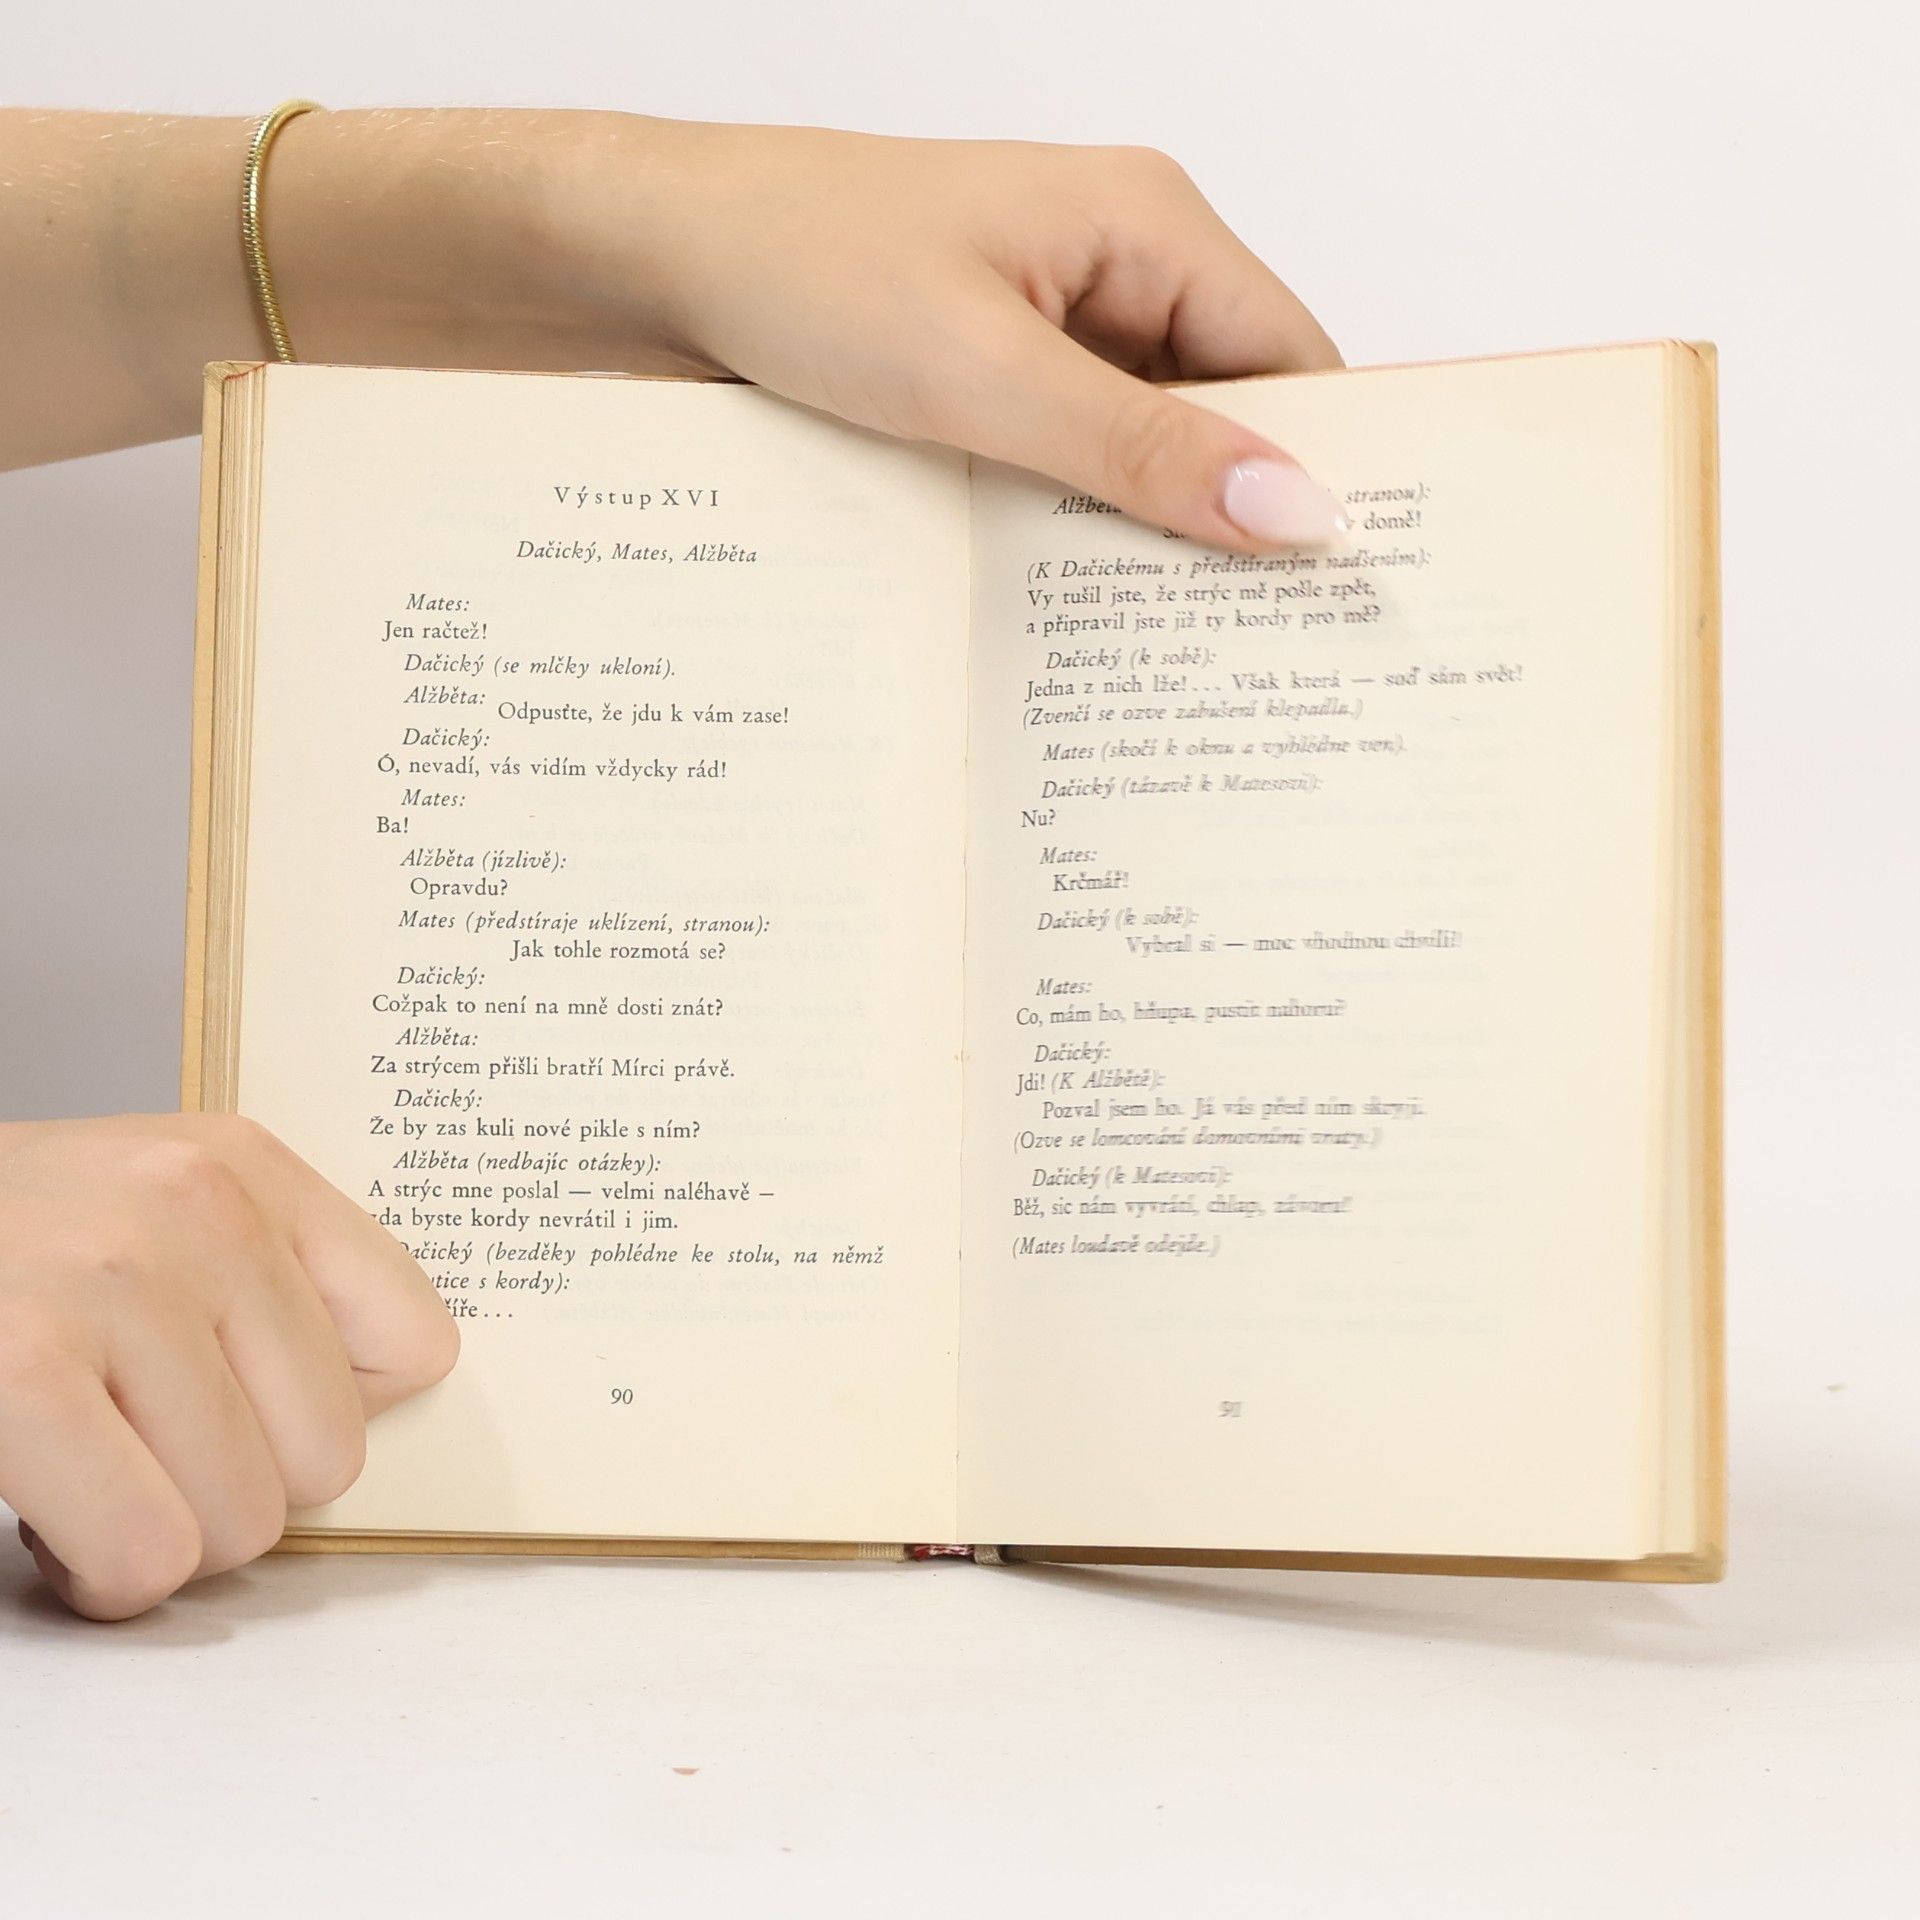 Výstup XVI
Dačický, Mates, Alžběta
Mates:
Jen račtež!
Dačický (se mlčky ukloní).
Alžběta:
Odpusťte, že jdu k vám zase!
Dačický:
Ó, nevadí, vás vidím vždycky rád!
Mates:
Ba!
Alžběta (jízlivě):
Opravdu?
Mates (předstíraje uklízení, stranou):
Jak tohle rozmotá se?
Dačický:
Cožpak to není na mně dosti znát?
Alžběta:
Za strýcem přišli bratří Mírci právě.
Dačický:
Že by zas kuli nové pikle s ním?
Alžběta (nedbajíc otázky):
A strýc mne poslal — velmi naléhavě –
byste kordy nevrátil i jim.
Dačický (bezděky pohlédne ke stolu, na němž
s kordy):
90
Alžběta stranou):
v domě!
(K Dačickému s předstíraným nadšením):
Vy tušil jste, že strýc mě pošle zpět,
a připravil jste již ty kordy pro mě?
Dačický (k sobě):
Jedna z nich lže!... Však která — suď sám svět!
(Zvenčí se ozve zabušení klepadla.)
Mates (skočí k oknu a vyhlédne ven).
Dačický (tázavě k Matesovi):
Nu?
Mates:
Krčmář!
Dačický (k sobě):
Vybral si — moc vhodnou chvíli!
Mates:
Co, mám ho, hňupa, pustit nahoru?
Dačický:
Jdi! (K Alžbětě):
Pozval jsem ho. Já vás před ním skryji.
(Ozve se lomcování domovními vraty.)
Dačický (k Matesovi):
Běž, sic nám vyvrátí, chlap, závoru!
(Mates loudavě odejde.)
91